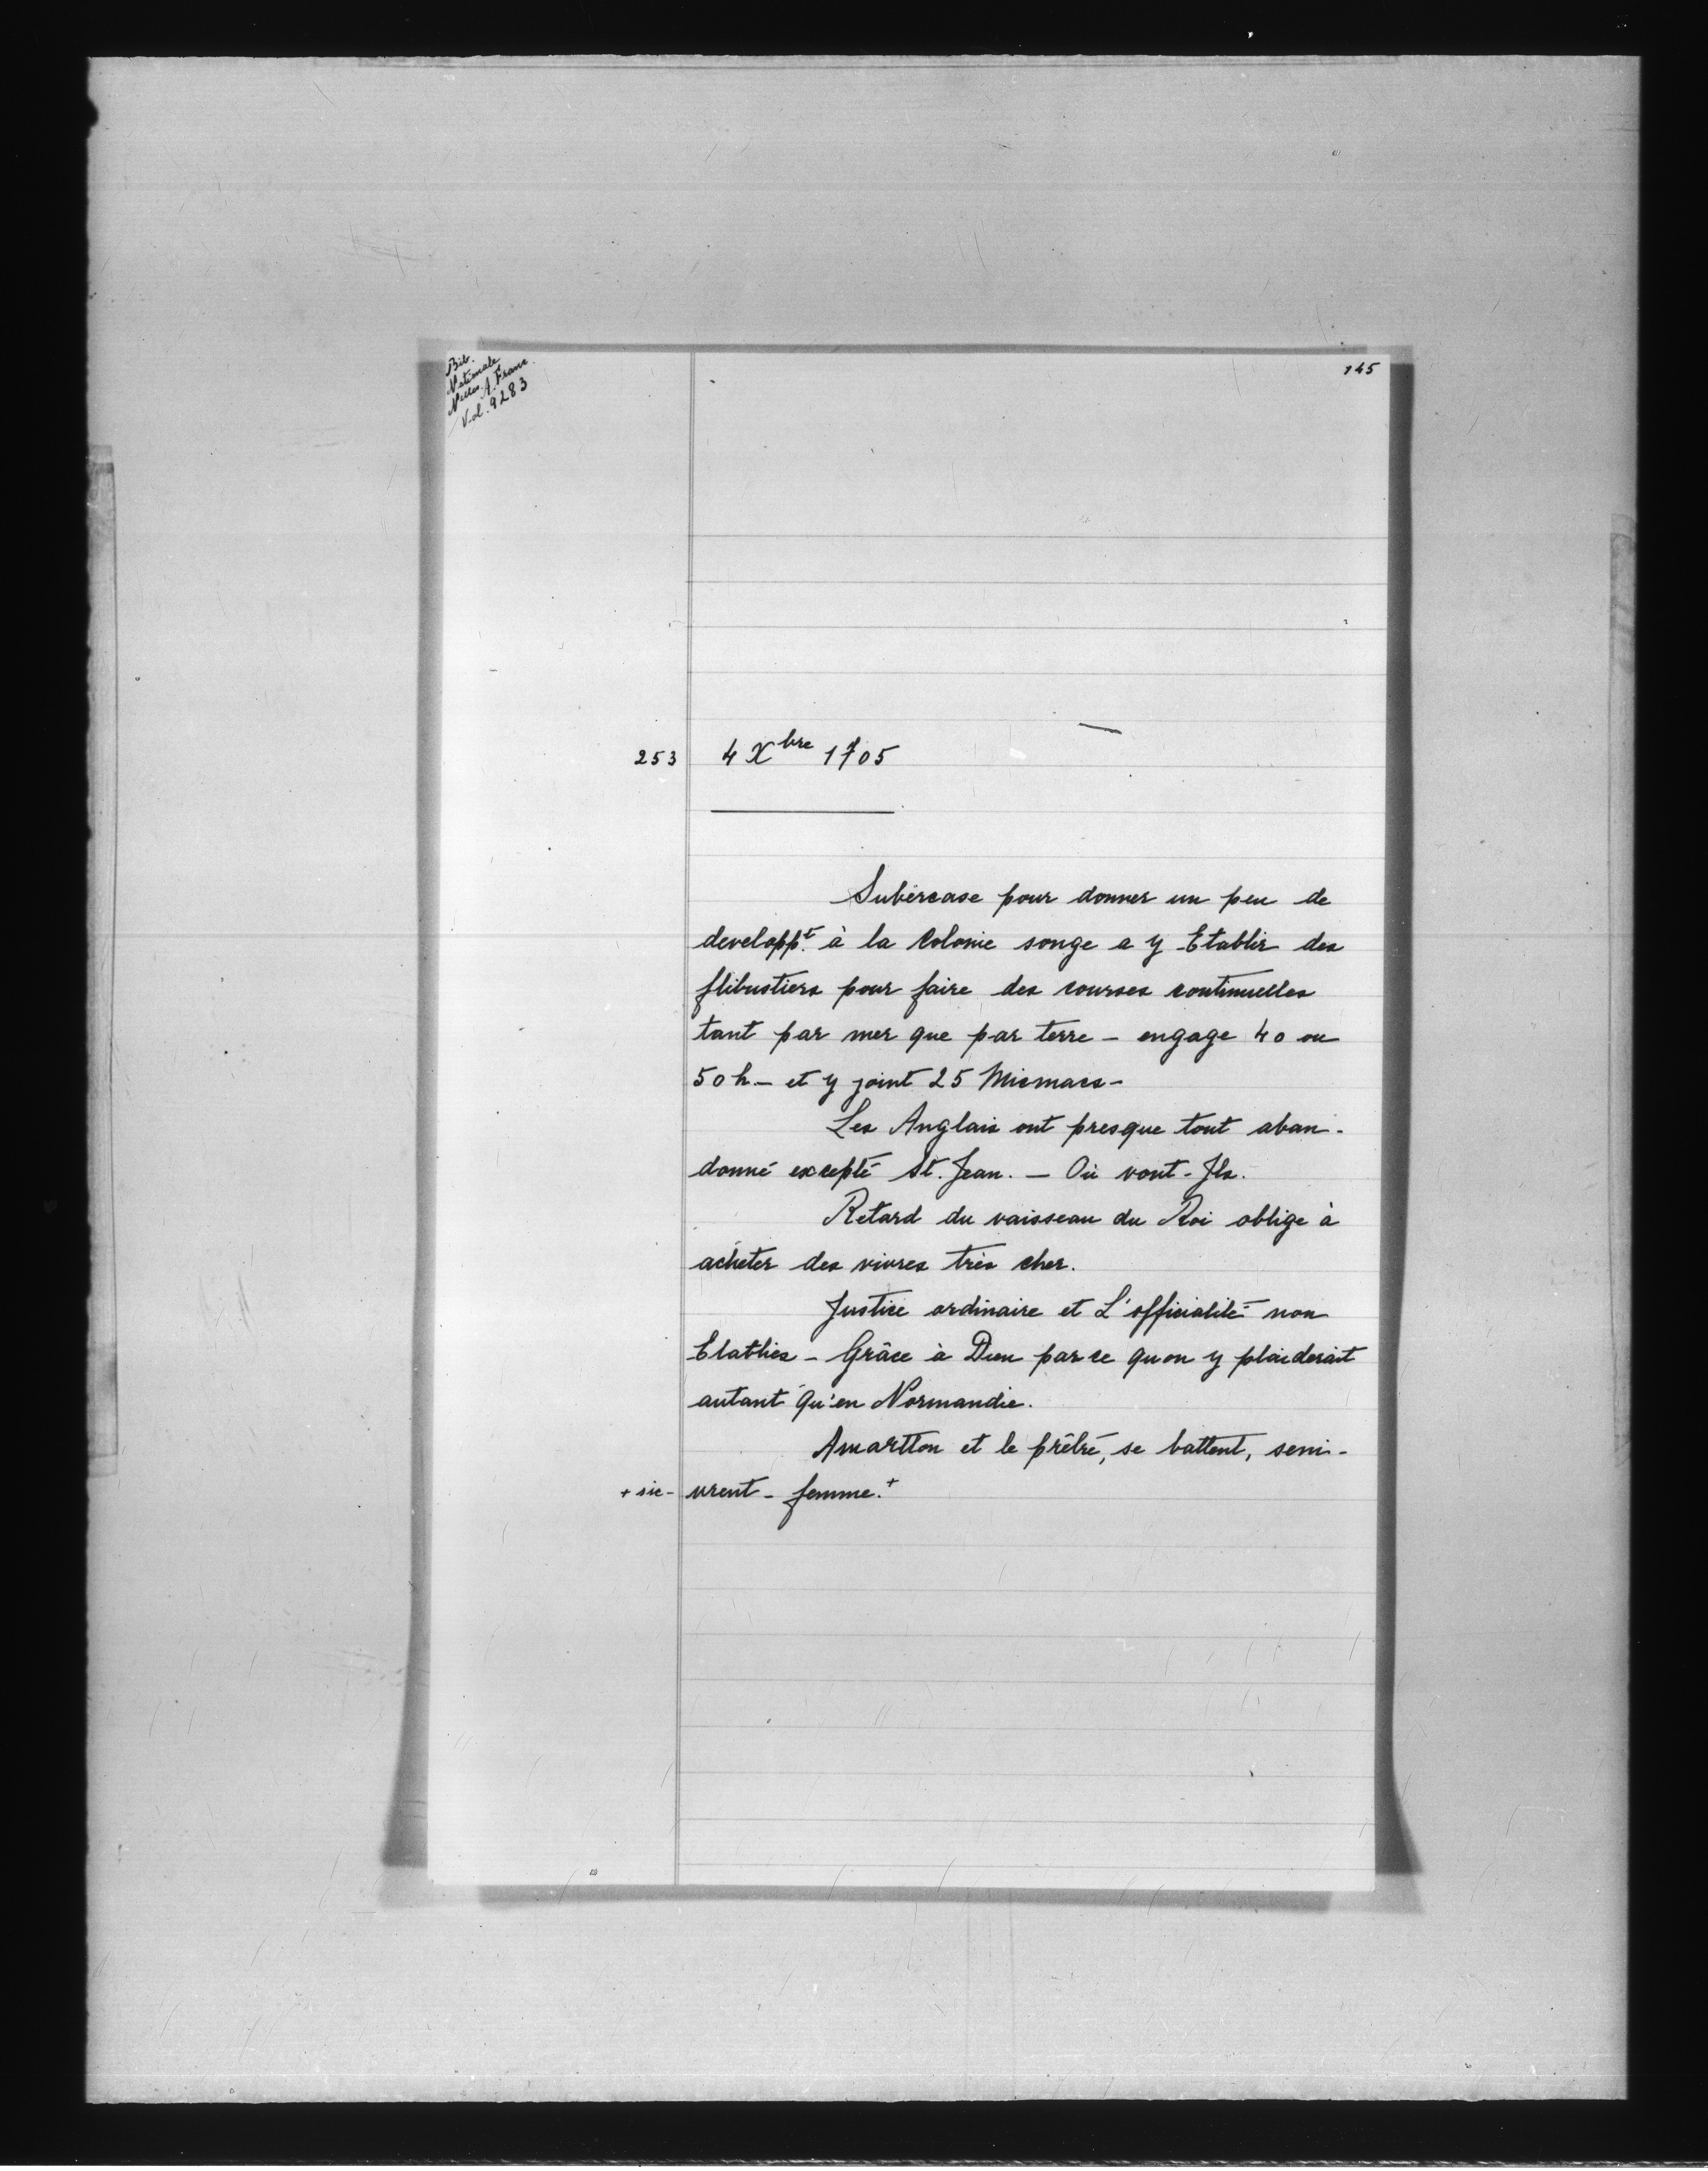 Bib.
Nationale
Nelles A. Franc.
Vol. 9283
145
253 4 Xbre 1705
Subercase pour donner un peu de
developpt. à la Colonie songe a y Etablir des
flibustiers pour faire des courses continuelles
tant par mer que par terre - engage 40 ou
50 h. - et y joint 25 Micmacs -
Les Anglais ont presque tout aban-
donné excepté St. Jean. - Où vont-Ils.
Retard du vaisseau du Roi oblige à
acheter des vivres très cher.
Justice ordinaire et L'officialité non
Etablies - Grâce à Dieu parce quon y plaiderait
autant qu'en Normandie.
Amartton et le prêtré, se battent, seni-
+ sic - vrent - femme. +